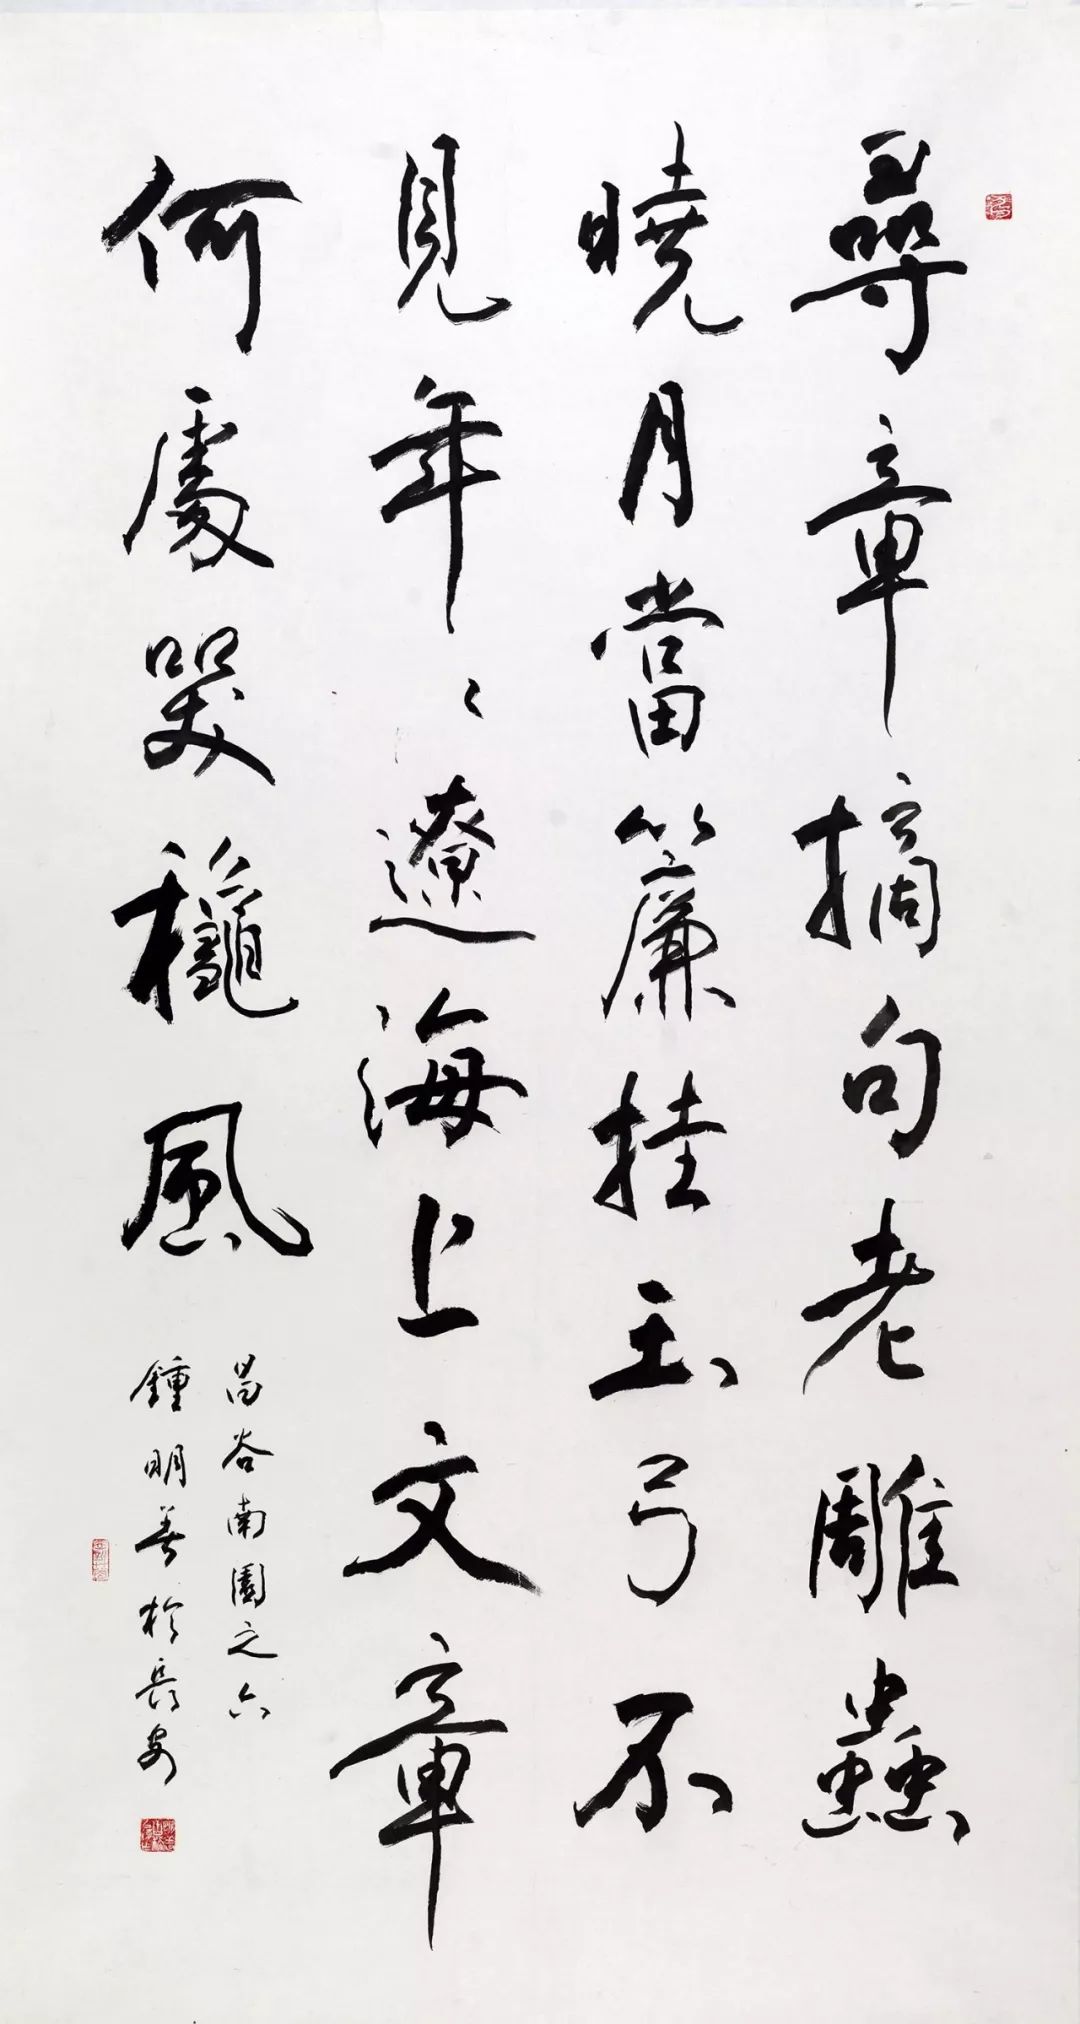 尋章摘句老雕蟲
曉月當簾挂玉弓不
見年〻遼海上文章
何處哭穐風
昌谷南園之六
鍾明善於長安